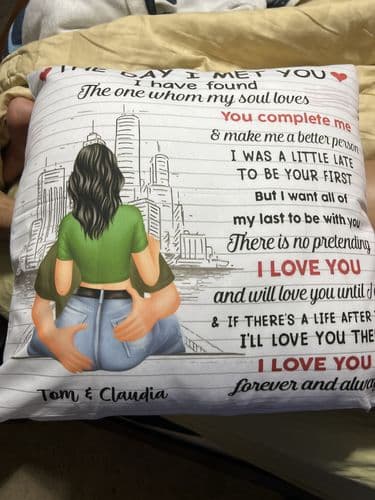 THE DAY I MET YOU
I have found
The one whom my soul loves
You complete me
& make me a better person
I WAS A LITTLE LATE
TO BE YOUR FIRST
But I want all of
my last to be with you
There is no pretending
I LOVE YOU
and will love you until
& IF THERE'S A LIFE AFTER
I'LL LOVE YOU
I LOVE YOU
forever and
Tom & Claudia